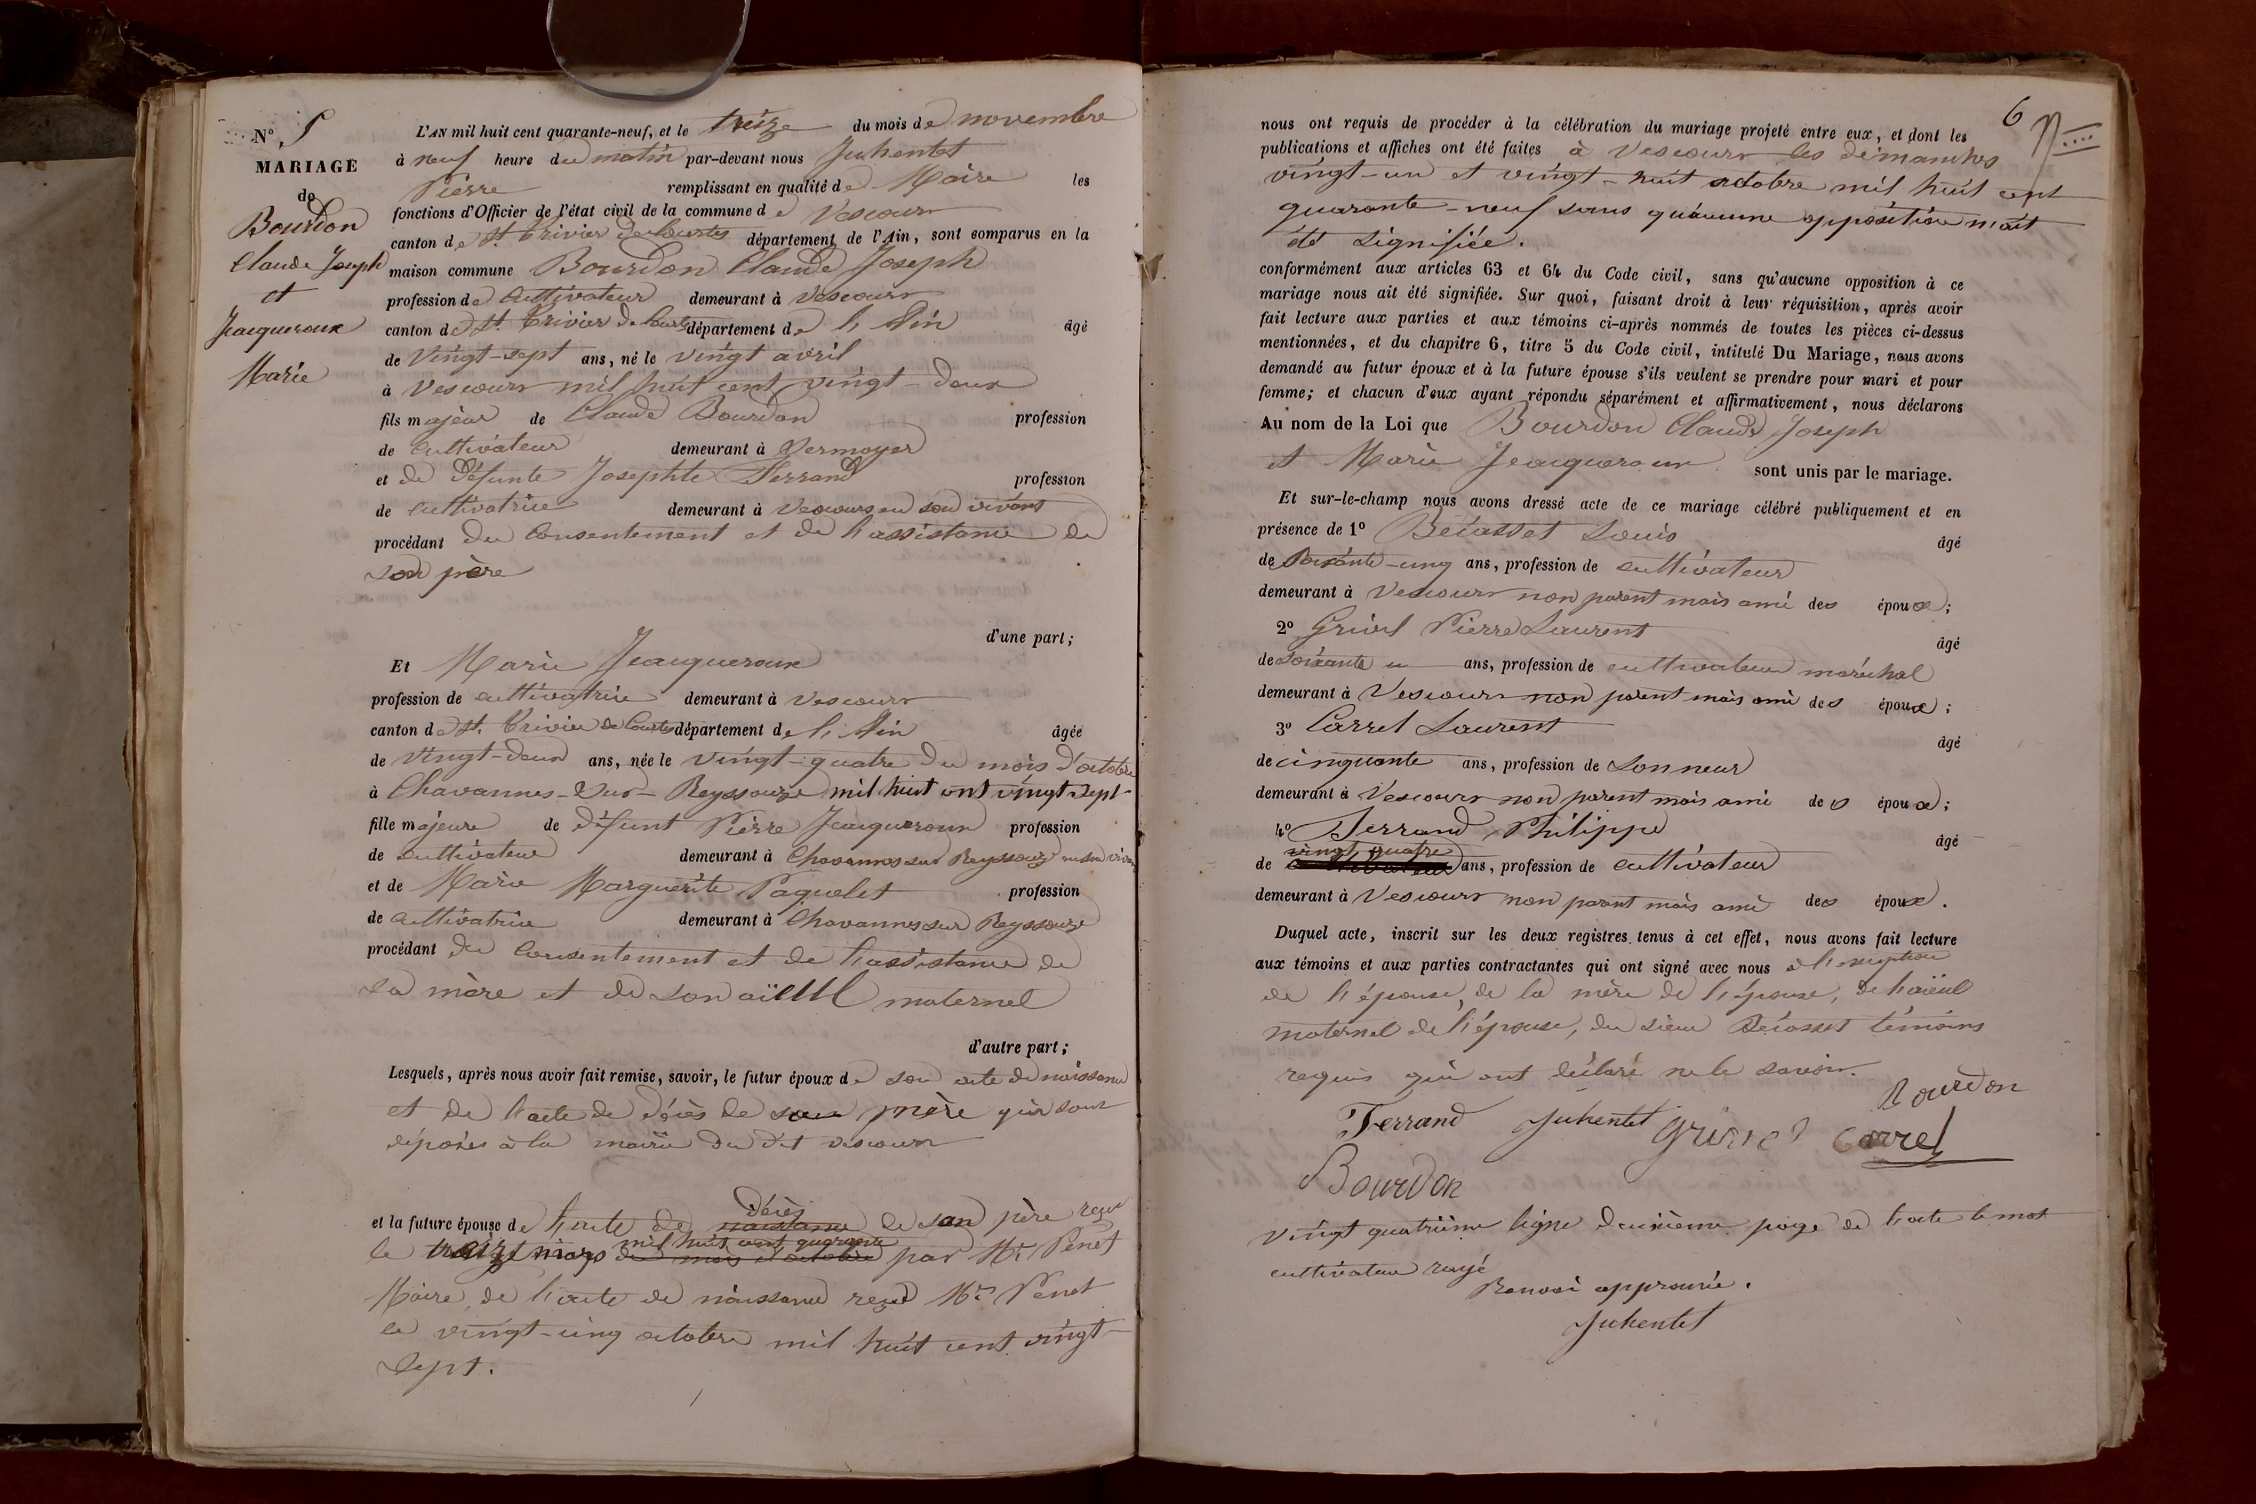 N° 5
MARIAGE
de
Bourdon
Claude Joseph
et
Jeacqueroux
Marie
L'AN mil huit cent quarante-neuf, et le treize du mois de novembre
à neuf heure du matin par-devant nous Juhentet
Pierre remplissant en qualité de Maire les
fonctions d'Officier de l'état civil de la commune de Vescours
canton de St. Trivier de Courtes département de l'Ain, sont comparus en la
maison commune Bourdon Claude Joseph
profession de Cultivateur demeurant à Vescours
canton de St. Trivier de Courtes département de l'Ain âgé
de Vingt-sept ans, né le vingt avril
à Vescours mil huit cent vingt-deux
fils majeur de Claude Bourdon profession
de cultivateur demeurant à Sermoyer
et de défunte Josephte Ferrand profession
de cultivatrice demeurant à Vescours en son vivant
procédant du Consentement et de l'assistance de
son père
d'une part;
Et Marie Jeacqueroux
profession de cultivatrice demeurant à Vescours
canton de St. Trivier de Courtes département de l'Ain âgée
de Vingt-deux ans, née le vingt-quatre du mois d'octobre
à Chavannes-Sur-Reyssouze mil huit cent vingt sept
fille majeure de défunt Pierre Jeacqueroux profession
de cultivateur demeurant à Chavannes sur Reyssouze en son vivant
et de Marie Marguerite Paquelet profession
de cultivatrice demeurant à Chavannes sur Reyssouze
procédant du Consentement et de l'assistance de
sa mère et de son aïeul maternel
d'autre part;
Lesquels, après nous avoir fait remise, savoir, le futur époux de son acte de naissance
et de l'acte de décès de sa mère qui sont
déposés à la mairie du dit vescours
et la future épouse de l'acte de décès de son père reçu
le treize mars mil huit cent quarante par Mr. Penet
Maire, de l'acte de naissance reçu Mr. Penet
le vingt-cinq octobre mil huit cent vingt-
sept.
6
nous ont requis de procéder à la célébration du mariage projeté entre eux, et dont les
publications et affiches ont été faites à Vescours les dimanches
vingt-un et vingt-huit octobre mil huit cent
quarante-neuf sans qu'aucune opposition m'ait
été signifiée.
conformément aux articles 63 et 64 du Code civil, sans qu'aucune opposition à ce
mariage nous ait été signifiée. Sur quoi, faisant droit à leur réquisition, après avoir
fait lecture aux parties et aux témoins ci-après nommés de toutes les pièces ci-dessus
mentionnées, et du chapitre 6, titre 5 du Code civil, intitulé Du Mariage, nous avons
demandé au futur époux et à la future épouse s'ils veulent se prendre pour mari et pour
femme; et chacun d'eux ayant répondu séparément et affirmativement, nous déclarons
Au nom de la Loi que Bourdon Claude Joseph
et Marie Jeacqueroux sont unis par le mariage.
Et sur-le-champ nous avons dressé acte de ce mariage célébré publiquement et en
présence de 1° Bécasset Louis âgé
de Soixante-cinq ans, profession de cultivateur
demeurant à Vescours non parent mais ami des époux;
2° Grivel Pierre Laurent âgé
de soixante ans, profession de cultivateur maréchal
demeurant à Vescours non parent mais ami des époux;
3° Carrel Laurent âgé
de cinquante ans, profession de Sonneur
demeurant à Vescours non parent mais ami des époux;
4° Ferrand Philippe âgé
de vingt quatre ans, profession de cultivateur
demeurant à Vescours non parent mais ami des époux.
Duquel acte, inscrit sur les deux registres tenus à cet effet, nous avons fait lecture
aux témoins et aux parties contractantes qui ont signé avec nous à l'exception
de l'épouse, de la mère de l'épouse, de l'aïeul
maternel de l'épouse, du sieur Bécasset témoins
requis qui ont déclaré ne le savoir.
Bourdon
Ferrand Juhentet Grivel Carrel
Bourdon
vingt quatrième ligne deuxième page de l'acte le mot
cultivateur rayé
Renvoi approuvé.
Juhentet